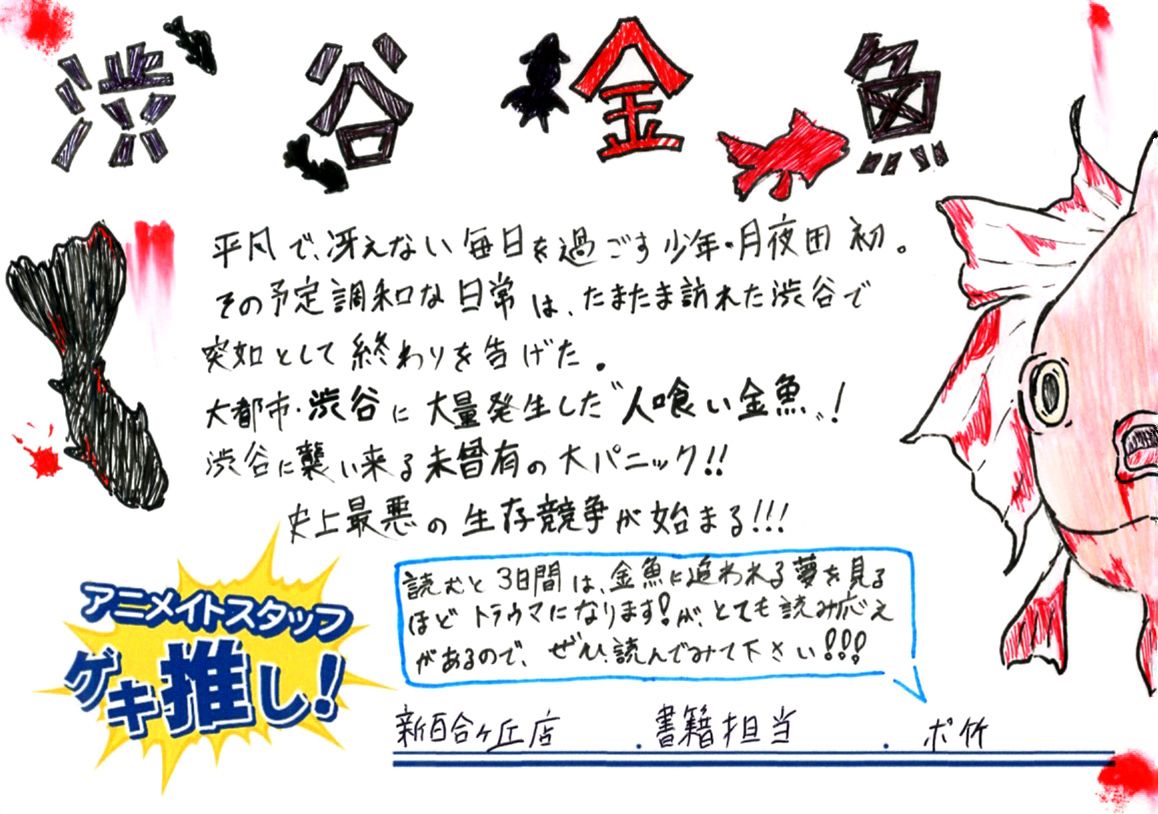 渋谷金魚
平凡で、冴えない毎日を過ごす少年・月夜田 初。
その予定調和な日常は、たまたま訪れた渋谷で
突如として終わりを告げた。
大都市・渋谷に大量発生した〝人喰い金魚〟!
渋谷に襲い来る未曾有の大パニック!!
史上最悪の生存競争が始まる!!!
読むと3日間は、金魚に追われる夢を見る
ほどトラウマになります!が、とても読み応え
があるので、ぜひ、読んでみて下さい!!!
アニメイトスタッフ
ゲキ推し!
新百合ヶ丘店 . 書籍担当 . ボ竹